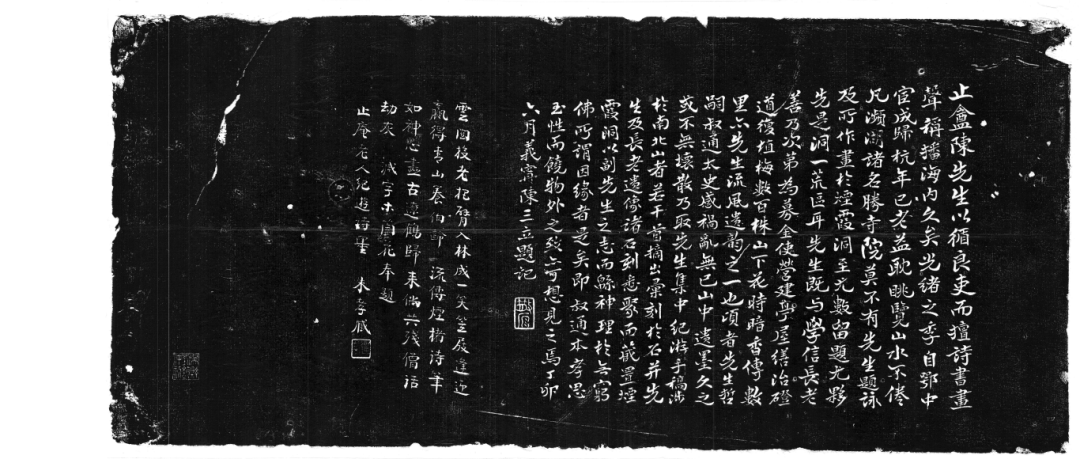 止盦陳先生以循良吏而擅詩書畫
聲稱播海內久矣光緒之季自鄂中
宦成歸杭年已老益耽眺覽山水不倦
凡瀕湖諸名勝寺院莫不有先生題詠
及所作畫於煙霞洞至尤數留題尤夥
先是洞一荒區耳先生既与學信長老
善乃次第為募金使營建學屋繕治磴
道復植梅數百株山下花時暗香傳數
里亦先生流風遺韵之一也頃者先生哲
嗣叔通太史感禍亂無已山中遺墨久之
或不無壞散乃取先生集中紀游手稿涉
於南北山者若干首稿出彙刻於石并先
生及長老遺像諸石刻悉聚而嵌置煙
霞洞以副先生之志而緜神理於無窮
佛所謂因緣者是矣即叔通本孝思
至性而鏡物外之殘亦可想見之焉丁卯
六月義寧陳三立題記
雲回後老把臂入林咸一笑
贏得青山養白 流傳煙 詩筆
如神 古 鶴歸來 共 僧話
劫灰
止庵老人紀遊詩